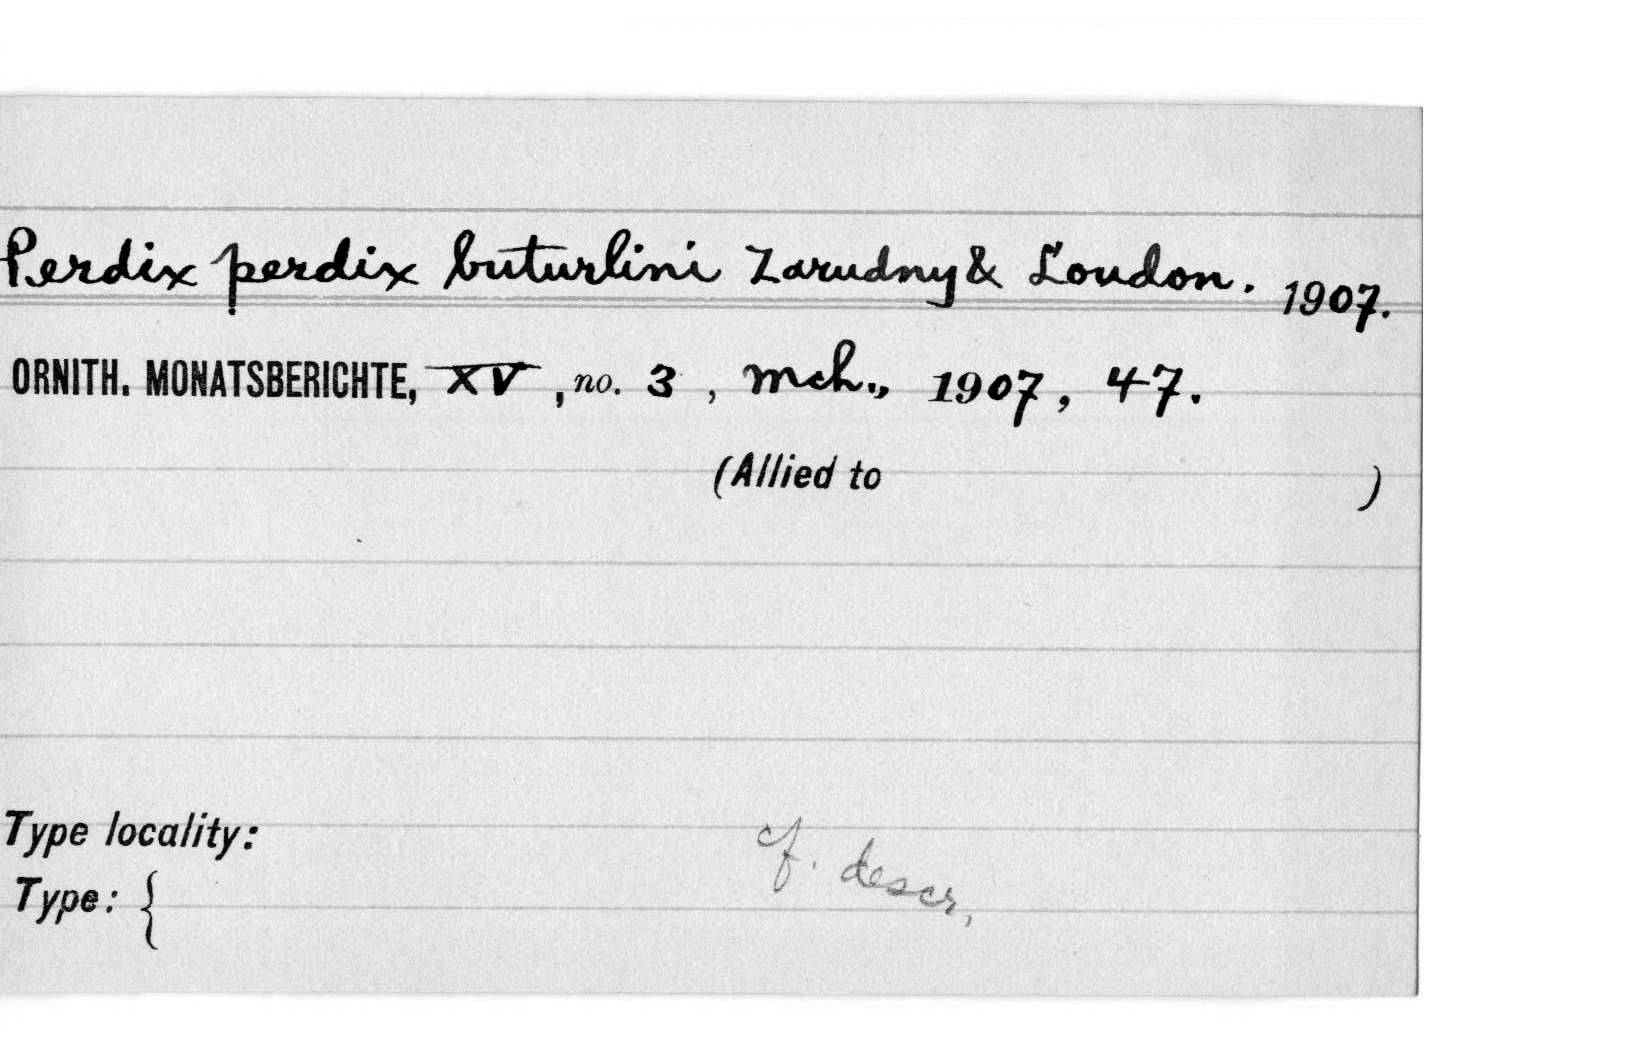 Perdix perdix buturlini Zarudny & Loudon. 1907.
ORNITH. MONATSBERICHTE, XV, no. 3, mch., 1907, 47.
(Allied to )
Type locality:
cf. descr.
Type: {